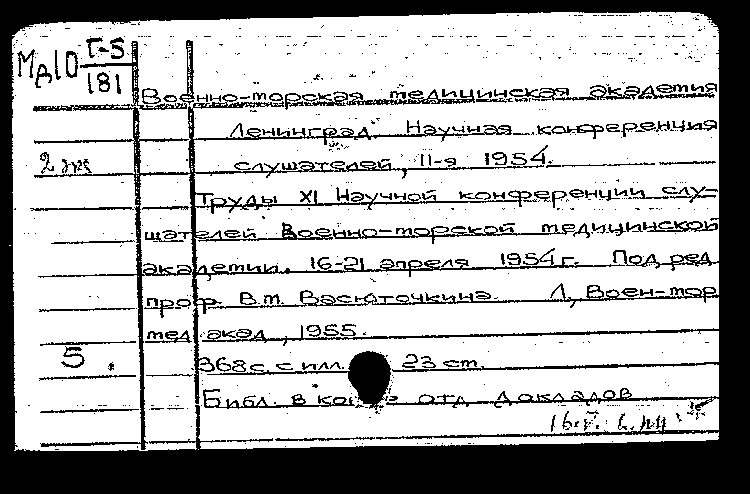 МдlО Г-5
181
Военно-морская медицинская академия
Ленинград. Научная конференция
2 экз слушателей, II-я 1954.
Труды XI Научной конференции слу-
шателей Военно-морской медицинской
академии. 16-21 апреля 1954 г. Под ред.
проф. В.м. Васюточкина. Л, Воен-мор
мед акад, 1955.
5. 368 с. с илл. 23 см.
Библ. в конце отд докладов